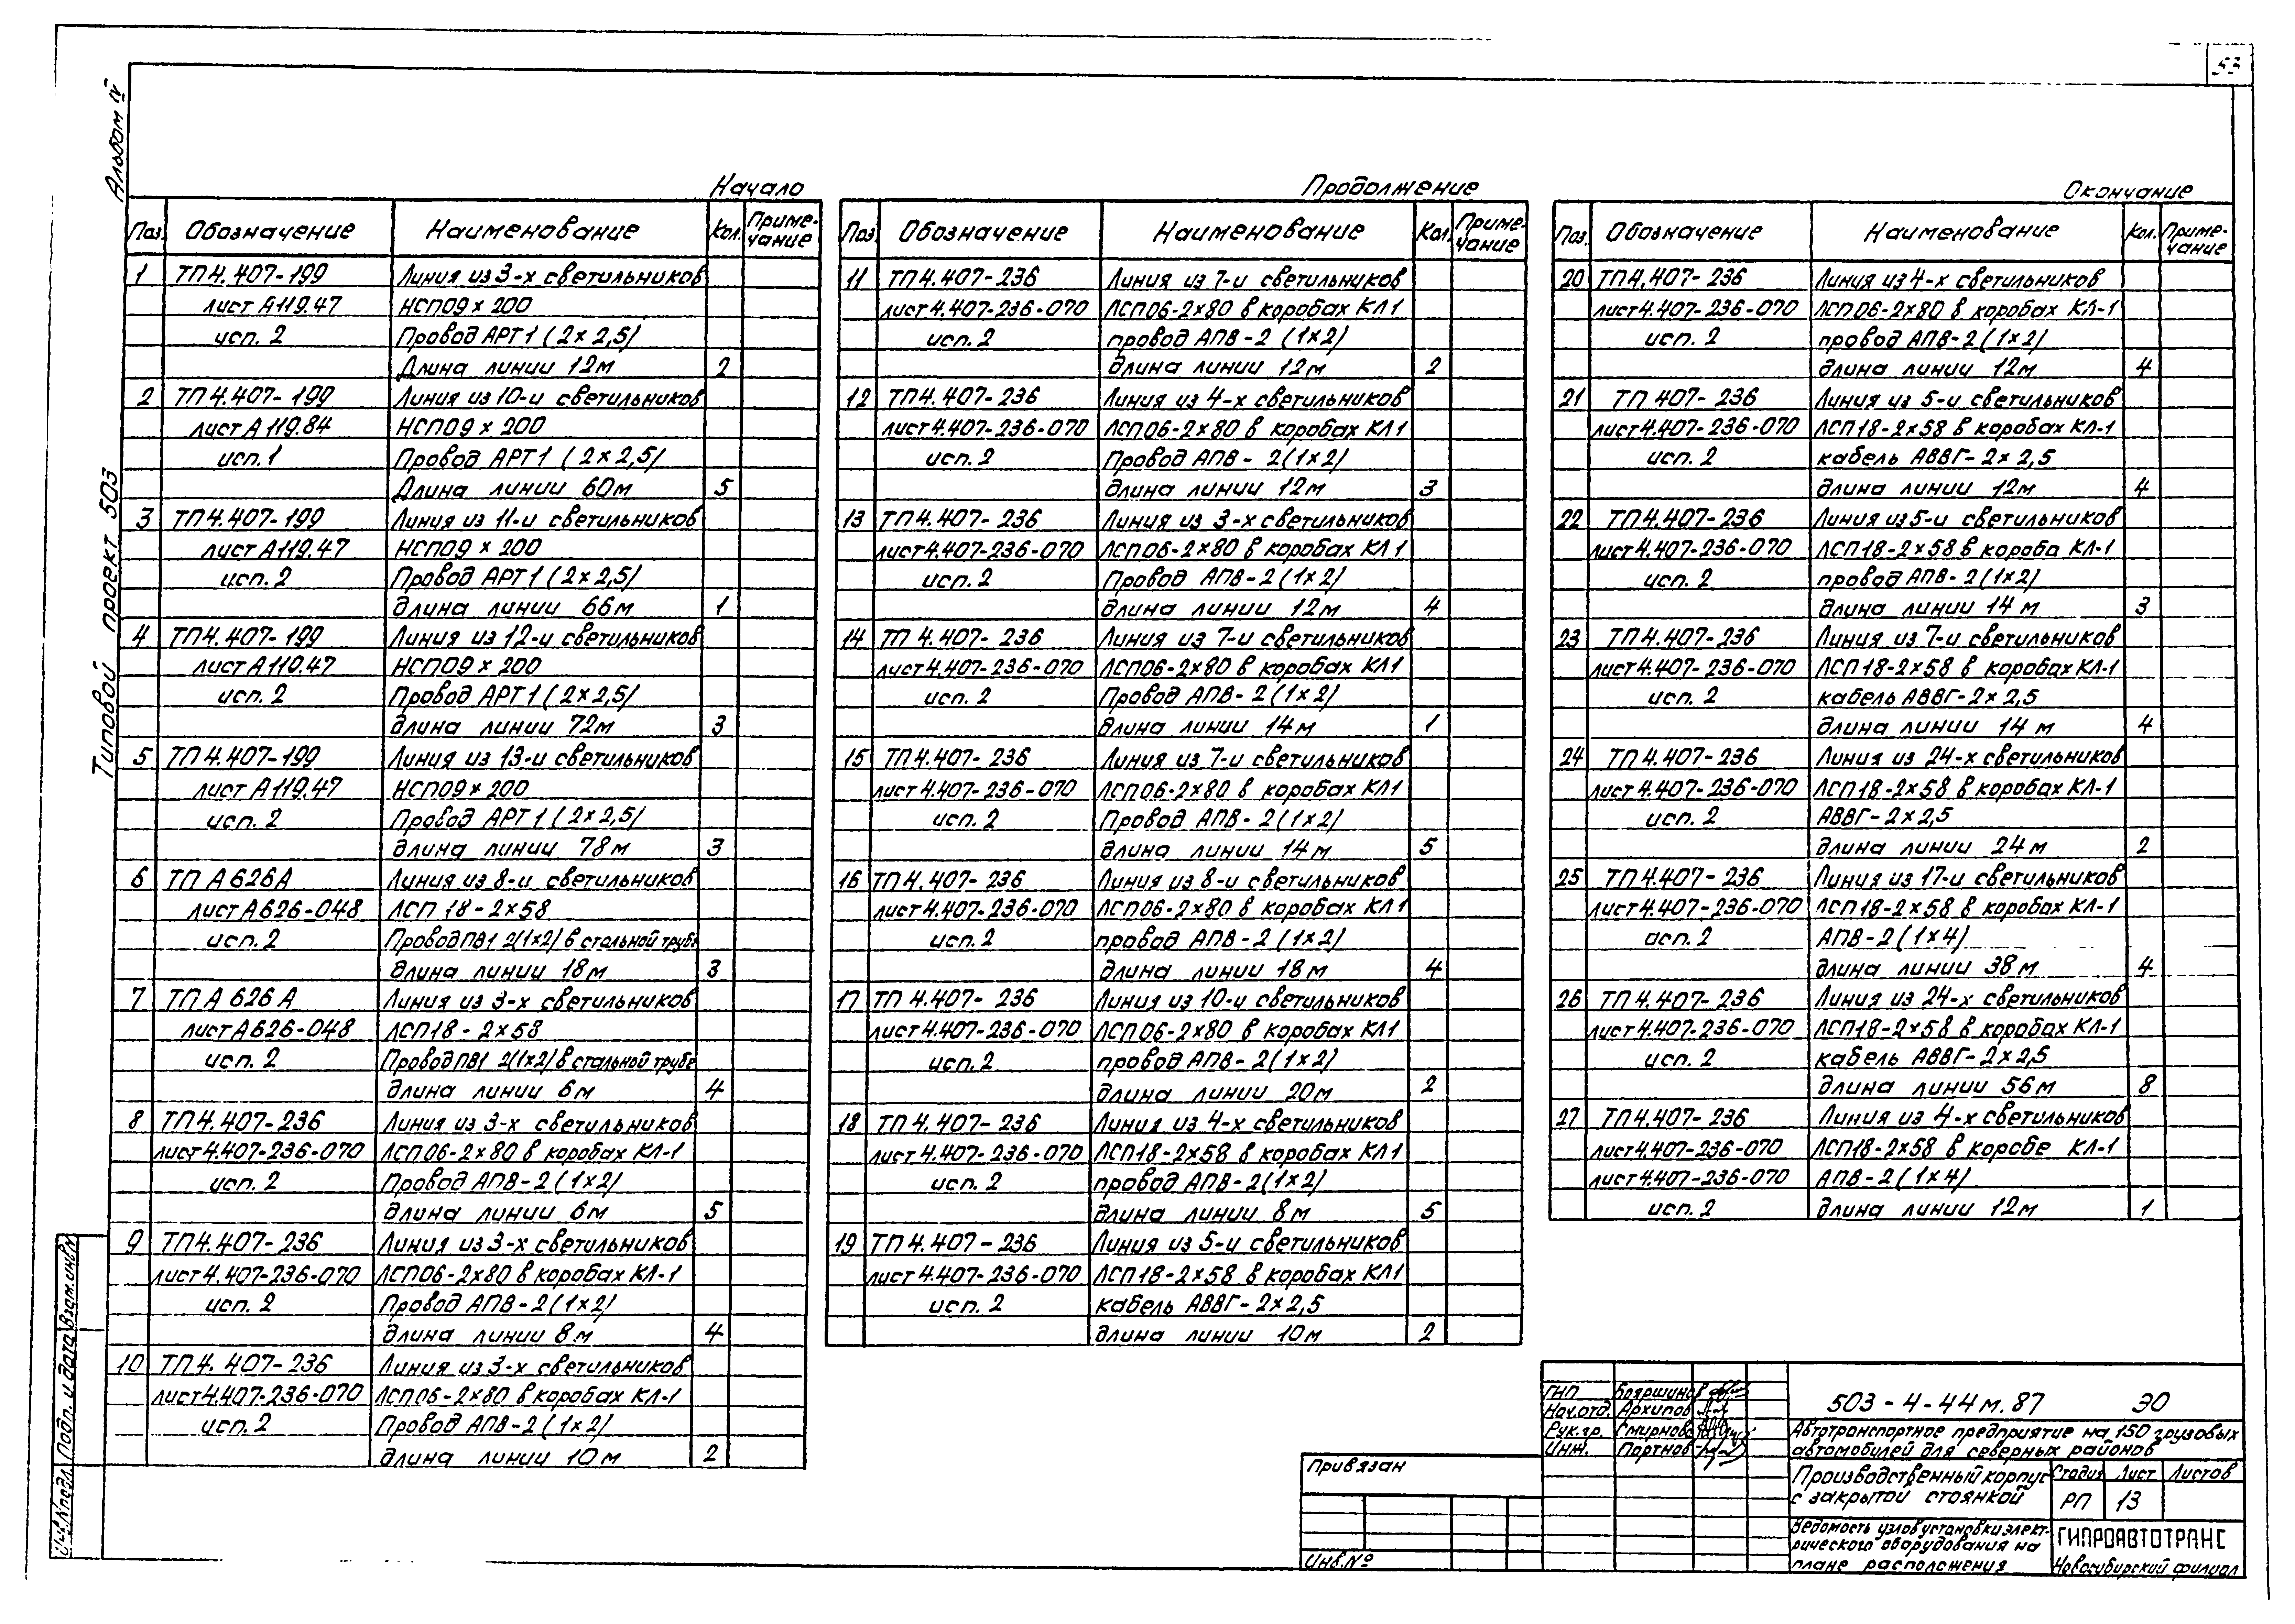 53
Альбом IV
Типовой проект 503
Начало
Поз. Обозначение Наименование Кол. Приме-
чание
1 ТП 4.407-199 Линия из 3-х светильников
лист А119.47 НСП09×200
исп. 2 Провод АРТ1 (2×2,5)
Длина линии 12м 2
2 ТП 4.407-199 Линия из 10-и светильников
лист А119.84 НСП09×200
исп. 1 Провод АРТ1 (2×2,5)
Длина линии 60м 5
3 ТП 4.407-199 Линия из 11-и светильников
лист А119.47 НСП09×200
исп. 2 Провод АРТ1 (2×2,5)
длина линии 66м 1
4 ТП 4.407-199 Линия из 12-и светильников
лист А119.47 НСП09×200
исп. 2 Провод АРТ1 (2×2,5)
длина линии 72м 3
5 ТП 4.407-199 Линия из 13-и светильников
лист А119.47 НСП09×200
исп. 2 Провод АРТ1 (2×2,5)
длина линии 78м 3
6 ТП А626А Линия из 8-и светильников
лист А626-048 ЛСП 18-2×58
исп. 2 Провод ПВ1 2(1×2) в стальной трубе
длина линии 18м 3
7 ТП А626А Линия из 3-х светильников
лист А626-048 ЛСП18-2×58
исп. 2 Провод ПВ1 2(1×2) в стальной трубе
длина линии 6м 4
8 ТП 4.407-236 Линия из 3-х светильников
лист 4.407-236-070 ЛСП06-2×80 в коробах КЛ-1
исп. 2 Провод АПВ-2(1×2)
длина линии 6м 5
9 ТП 4.407-236 Линия из 3-х светильников
лист 4.407-236-070 ЛСП06-2×80 в коробах КЛ-1
исп. 2 Провод АПВ-2(1×2)
длина линии 8м 4
10 ТП 4.407-236 Линия из 3-х светильников
лист 4.407-236-070 ЛСП06-2×80 в коробах КЛ-1
исп. 2 Провод АПВ-2(1×2)
длина линии 10м 2
Продолжение
Поз. Обозначение Наименование Кол. Приме-
чание
11 ТП 4.407-236 Линия из 7-и светильников
лист 4.407-236-070 ЛСП06-2×80 в коробах КЛ1
исп. 2 провод АПВ-2 (1×2)
длина линии 12м 2
12 ТП 4.407-236 Линия из 4-х светильников
лист 4.407-236-070 ЛСП06-2×80 в коробах КЛ1
исп. 2 Провод АПВ-2(1×2)
длина линии 12м 3
13 ТП 4.407-236 Линия из 3-х светильников
лист 4.407-236-070 ЛСП06-2×80 в коробах КЛ1
исп. 2 Провод АПВ-2(1×2)
длина линии 12м 4
14 ТП 4.407-236 Линия из 7-и светильников
лист 4.407-236-070 ЛСП06-2×80 в коробах КЛ1
исп. 2 Провод АПВ-2(1×2)
длина линии 14м 1
15 ТП 4.407-236 Линия из 7-и светильников
лист 4.407-236-070 ЛСП06-2×80 в коробах КЛ1
исп. 2 Провод АПВ-2(1×2)
длина линии 14м 5
16 ТП 4.407-236 Линия из 8-и светильников
лист 4.407-236-070 ЛСП06-2×80 в коробах КЛ1
исп. 2 провод АПВ-2(1×2)
длина линии 18м 4
17 ТП 4.407-236 Линия из 10-и светильников
лист 4.407-236-070 ЛСП06-2×80 в коробах КЛ1
исп. 2 провод АПВ-2(1×2)
длина линии 20м 2
18 ТП 4.407-236 Линия из 4-х светильников
лист 4.407-236-070 ЛСП18-2×58 в коробах КЛ1
исп. 2 провод АПВ-2(1×2)
длина линии 8м 5
19 ТП 4.407-236 Линия из 5-и светильников
лист 4.407-236-070 ЛСП18-2×58 в коробах КЛ1
исп. 2 кабель АВВГ-2×2,5
длина линии 10м 2
Окончание
Поз. Обозначение Наименование Кол. Приме-
чание
20 ТП 4.407-236 Линия из 4-х светильников
лист 4.407-236-070 ЛСП06-2×80 в коробах КЛ-1
исп. 2 провод АПВ-2(1×2)
длина линии 12м 4
21 ТП 407-236 Линия из 5-и светильников
лист 4.407-236-070 ЛСП18-2×58 в коробах КЛ-1
исп. 2 кабель АВВГ-2×2,5
длина линии 12м 4
22 ТП 4.407-236 Линия из 5-и светильников
лист 4.407-236-070 ЛСП18-2×58 в короба КЛ-1
исп. 2 провод АПВ-2(1×2)
длина линии 14м 3
23 ТП 4.407-236 Линия из 7-и светильников
лист 4.407-236-070 ЛСП18-2×58 в коробах КЛ-1
исп. 2 кабель АВВГ-2×2,5
длина линии 14м 4
24 ТП 4.407-236 Линия из 24-х светильников
лист 4.407-236-070 ЛСП18-2×58 в коробах КЛ-1
исп. 2 АВВГ-2×2,5
длина линии 24м 2
25 ТП 4.407-236 Линия из 17-и светильников
лист 4.407-236-070 ЛСП18-2×58 в коробах КЛ-1
исп. 2 АПВ-2(1×4)
длина линии 38м 4
26 ТП 4.407-236 Линия из 24-х светильников
лист 4.407-236-070 ЛСП18-2×58 в коробах КЛ-1
исп. 2 кабель АВВГ-2×2,5
длина линии 56м 8
27 ТП 4.407-236 Линия из 4-х светильников
лист 4.407-236-070 ЛСП18-2×58 в коробе КЛ-1
лист 4.407-236-070 АПВ-2(1×4)
исп. 2 длина линии 12м 1
Инв.№подл. Подп. и дата Взам.инв№
Привязан
Инв.№
ГИП Бояршинов
Нач.отд. Архипов
Рук.гр. Смирнова
Инж. Портнов
503-4-44м.87 ЭО
Автотранспортное предприятие на 150 грузовых
автомобилей для северных районов
Производственный корпус
с закрытой стоянкой
Стадия Лист Листов
РП 13
Ведомость узлов установки элект-
рического оборудования на
плане расположения
ГИПРОАВТОТРАНС
Новосибирский филиал